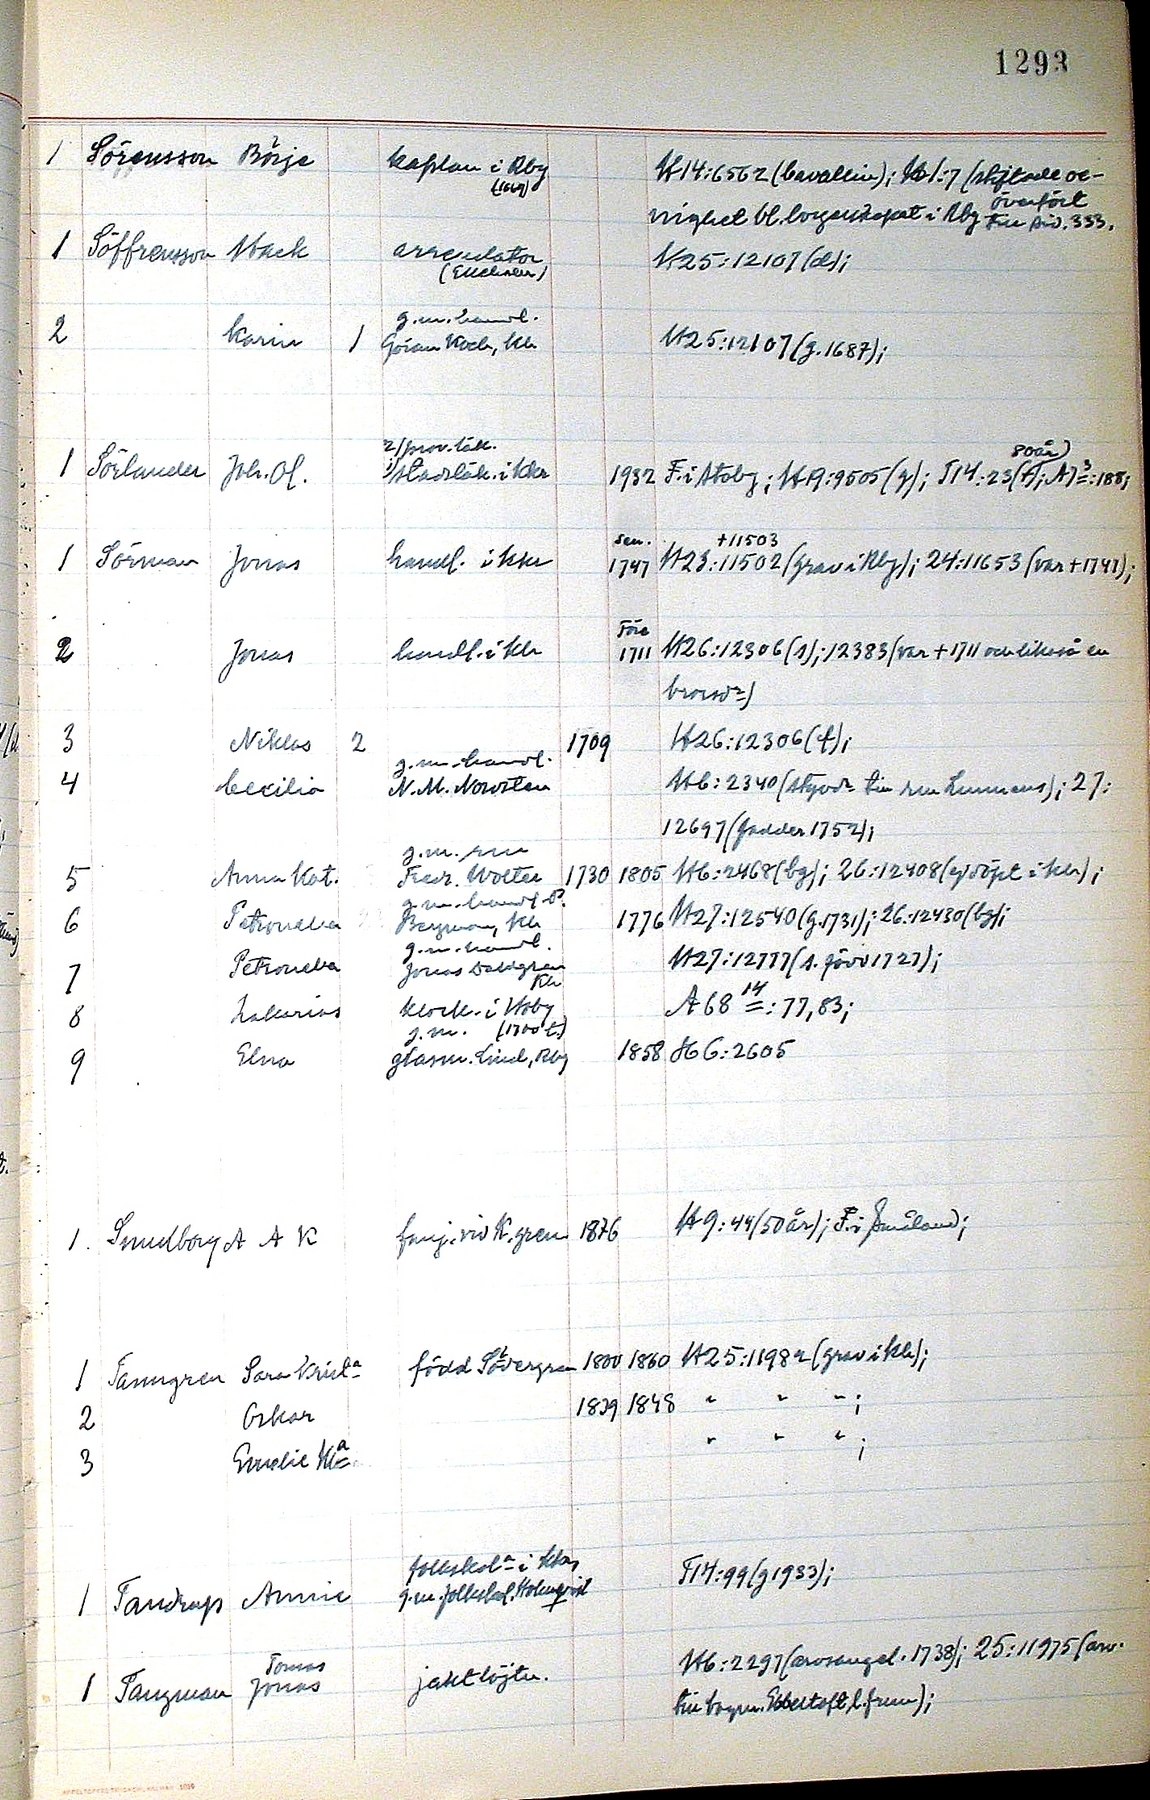 1293
1 Sörensson Börje kaplan i Rby (1669) H14:6562 (Cavallin); H61:7 (skiftade oe-
nighet bl. borgerskapet i Rby överfört till sid. 333.
1 Söffrensson Mack arrendator H25:12107 (d);
2 Karin 1 g.m. handl. Göran Kock, Kh H25:12107 (g. 1687);
1 Sörlander Joh. Ol. 2/prov.läk. 1/stadsläk. i Khr 1932 F. i Stoby; H19:9505 (g); T14:23 (†; 80 år) A) 3:188;
1 Sörman Jonas handl. i Khr sen. 1747 H23:11502 +11503 (grav i Rby); 24:11653 (var + 1747);
2 Jonas handl. i Kh Före 1711 H26:12306 (s); 12383 (var + 1711 och likaså en
brorsdr)
3 Niklas 2 1709 H26:12306 (f);
4 Cecilia g.m. handl. N.M. H6:2340 (styvdr till); 27:
12697 (fadder 1752);
5 Anna Kat. g.m. Fredr. Wolter 1730 1805 H6:2468 (bg); 26:12408 (ej döpt i Kh);
6 Petronella g.m. handl. P. Bergman, Kh 1776 H27:12540 (g. 1731); 26:12430 (bg);
7 Petronella g.m. handl. Jonas Dahlgren Kh H27:12777 (s. före 1727);
8 Zakarias klock. i (1700 t.) A68 14:77,83;
9 Elna g.m. glasm. Lind, Rby 1858 H6:2605
1. Smedborg A A K fanj. vid K. gren 1876 H9:44 (50 år); F. i Småland;
1 Tanngren Sara Krist a född Sövergren 1800 1860 H25:11982 (grav i Kh);
2 Oskar 1839 1848 " " ";
3 Emelie Ka " " ";
1 Tandrups Annie folkskol a i Khr, g.m. folkskol. Holmqvist T14:99 (g 1933);
1 Tangman Tomas Jonas jaktlöjtn. H6:2297 (arvsangel. 1738); 25:11975 (arv.
till borgm. Ebbertoft, l. frun);